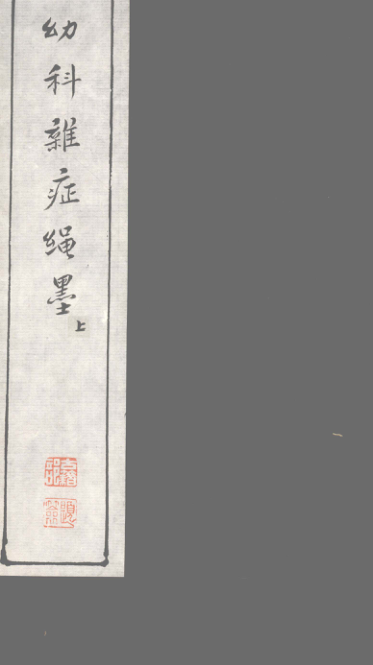 幼科雜症绳墨
上